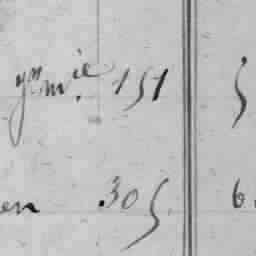 yᵐ mie. 151 5
en .305. 6.